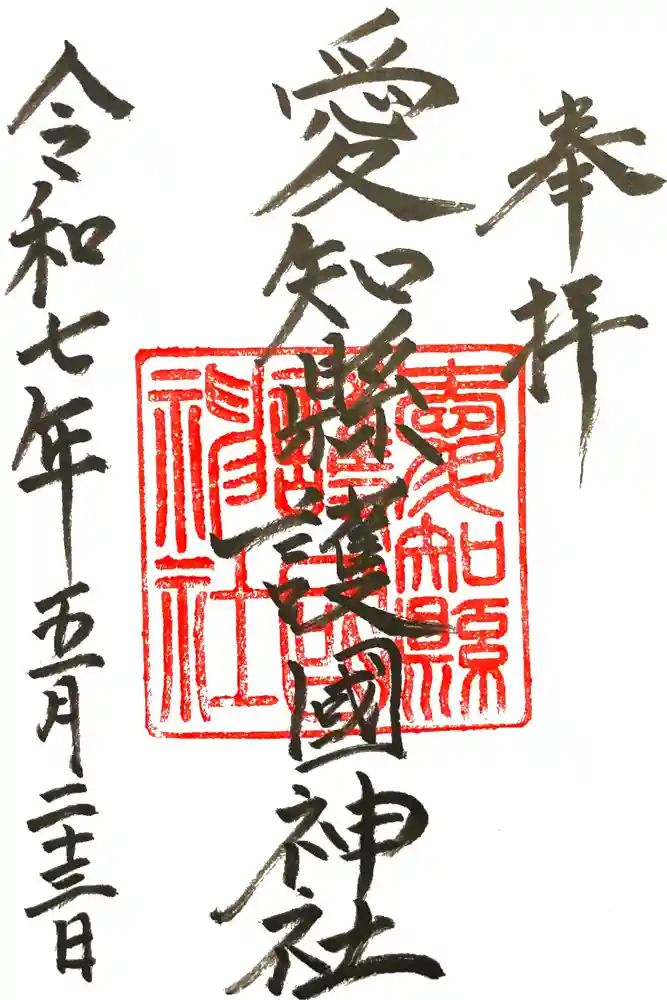 奉拝
愛知縣護國神社
愛知縣
護國
神社
令和七年五月二十三日